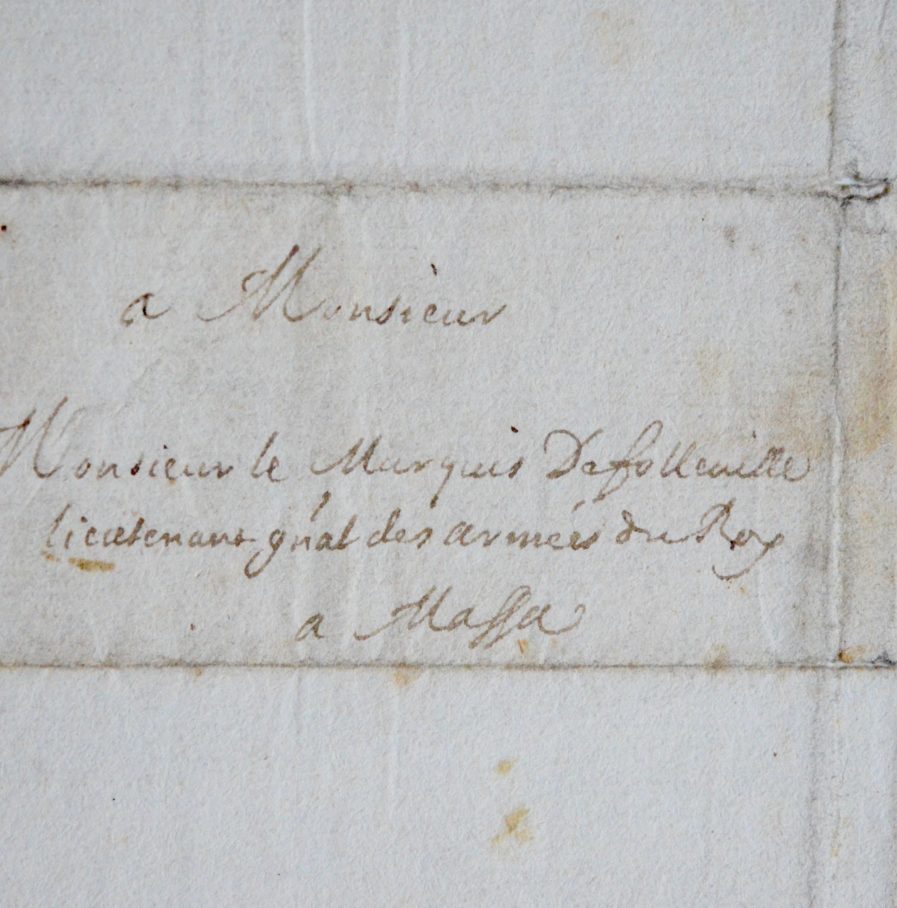 a Monsieur
Monsieur le Marquis De folleuille
lieutenant gnãl des armées du Roy
a Massa